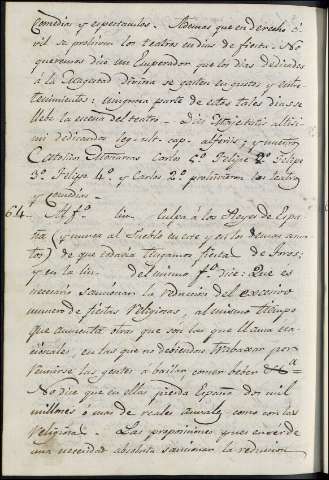 Comedias y espectaculos. Ademas que en derecho ci-
vil se prohiven los teatros en dias de fiesta. No
queremos dice un Emperador que los dias dedicados
á la Magestad Divina se gasten en gustos y entre-
tenimientos: ninguna parte de estos tales dias se
llebe la escena del teatro. Dies
dedicandos leg. ult. cap. y nuestros
Catolicos Monarcas Carlos 5º Felipe 2º Felipe
3º Felipe 4º y Carlos 2º prohivieron los teatros
y comedias.
64. Al fº lin. culpa á los Reyes de Espa-
ña (y nunca al Pueblo en este y en los demas
de que todavia tengamos fiestas de
y en la lin. del mismo fº dice: Que es
necesario sancionar la reducion del excesivo
numero de fiestas religiosas, al mismo tiempo
que aumenta otras que son las que llama
en las que no debiendo trabaxar por
reunirse las gentes á bailar comer beber &ª
No dice que en ellas pierda España dos mil
millones ó mas de reales anuales como con las
religiosas. Las proposiciones que
una necesidad absoluta sancionar la reducion